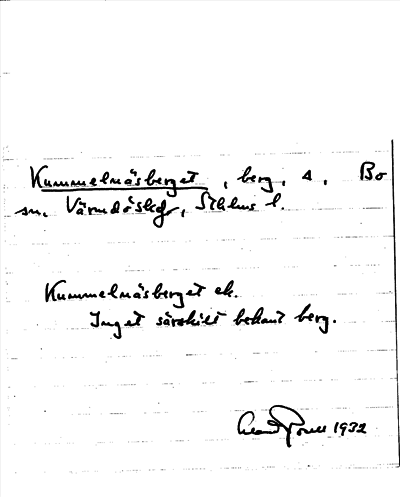 Kummelnäsberget, berg, 4, Bo
sn. Värmdöskg, Sthlms l.
Kummelnäsberget ek.
Inget särskilt bekant berg.
1932